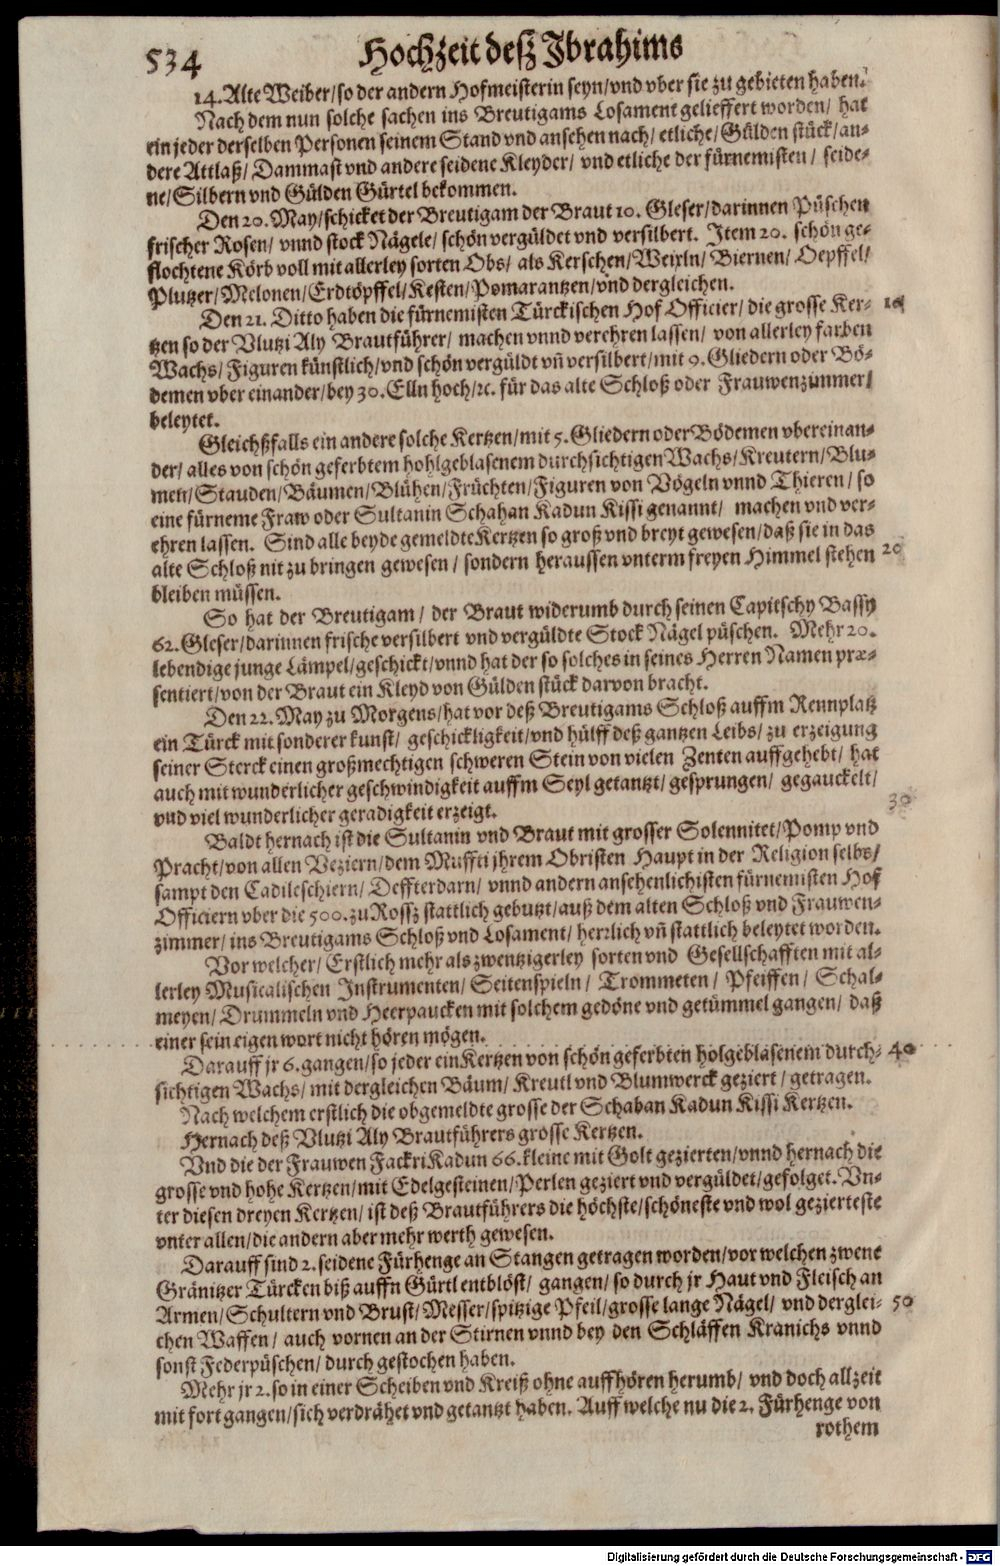 534 Hochzeit desz Ibrahims
14. Alte Weiber/ so der andern Hofmeisterin seyn/ vnd vber sie zu gebieten haben.
Nach dem nun solche sachen ins Breutigams Losament gelieffert worden/ hat
ein jeder derselben Personen seinem Stand vnd ansehen nach/ etliche/ Gülden stück/ an-
dere Attlaß/ Dammast vnd andere seidene Kleyder/ vnd etliche der fürnemisten/ seide-
ne/ Silbern vnd Gülden Gürtel bekommen.
Den 20. May/ schicket der Breutigam der Braut 10. Gleser/ darinnen Püschen
frischer Rosen/ vnnd stock Nägele/ schön vergüldet vnd versilbert. Item 20. schön ge-
flochtene Körb voll mit allerley sorten Obs/ als Kerschen/ Weixln/ Biernen/ Oepffel/
Plutzer/ Melonen/ Erdtöpffel/ Kesten/ Pomarantzen/ vnd dergleichen.
Den 21. Ditto haben die fürnemisten Türckischen Hof Officier/ die grosse Ker- 10
tzen so der Vlutzi Aly Brautführer/ machen vnnd verehren lassen/ von allerley farben
Wachs/ Figuren künstlich/ vnd schön vergüldt vñ versilbert/ mit 9. Gliedern oder Bö-
demen vber einander/ bey 30. Elln hoch/ ꝛc. für das alte Schloß oder Frauwenzimmer/
beleytet.
Gleichßfalls ein andere solche Kertzen/ mit 5. Gliedern oder Bödemen vbereinan-
der/ alles von schön geferbtem hohlgeblasenem durchsichtigen Wachs/ Kreutern/ Blu-
men/ Stauden/ Bäumen/ Blühen/ Früchten/ Figuren von Vögeln vnnd Thieren/ so
eine fürneme Fraw oder Sultanin Schahan Kadun Kissi genannt/ machen vnd ver-
ehren lassen. Sind alle beyde gemeldte Kertzen so groß vnd breyt gewesen/ daß sie in das
alte Schloß nit zu bringen gewesen/ sondern heraussen vnterm freyen Himmel stehen 20
bleiben müssen.
So hat der Breutigam/ der Braut widerumb durch seinen Capitschy Bassy
62. Gleser/ darinnen frische versilbert vnd vergüldte Stock Nägel püschen. Mehr 20.
lebendige junge Lämpel/ geschickt/ vnnd hat der so solches in seines Herren Namen præ-
sentiert/ von der Braut ein Kleyd von Gülden stück darvon bracht.
Den 22. May zu Morgens/ hat vor deß Breutigams Schloß auffm Rennplatz
ein Türck mit sonderer kunst/ geschickligkeit/ vnd hülff deß gantzen Leibs/ zu erzeigung
seiner Sterck einen großmechtigen schweren Stein von vielen Zenten auffgehebt/ hat
auch mit wunderlicher geschwindigkeit auffm Seyl getantzt/ gesprungen/ gegauckelt/
vnd viel wunderlicher geradigkeit erzeigt. 30
Baldt hernach ist die Sultanin vnd Braut mit grosser Solennitet/ Pomp vnd
Pracht/ von allen Veziern/ dem Muffti jhrem Obristen Haupt in der Religion selbs/
sampt den Cadileschiern/ Deffterdarn/ vnnd andern ansehenlichisten fürnemisten Hof
Officiern vber die 500. zu Rossz stattlich gebutzt/ auß dem alten Schloß vnd Frauwen-
zimmer/ ins Breutigams Schloß vnd Losament/ herꝛlich vñ stattlich beleytet worden.
Vor welcher/ Erstlich mehr als zwentzigerley sorten vnd Gesellschafften mit al-
lerley Musicalischen Instrumenten/ Seitenspieln/ Trommeten/ Pfeiffen/ Schal-
meyen/ Drummeln vnd Heerpaucken mit solchem gedöne vnd getümmel gangen/ daß
einer sein eigen wort nicht hören mögen.
Darauff jr 6. gangen/ so jeder ein Kertzen von schön geferbten holgeblasenem durch- 40
sichtigen Wachs/ mit dergleichen Bäum/ Kreutl vnd Blumwerck geziert/ getragen.
Nach welchem erstlich die obgemeldte grosse der Schaban Kadun Kissi Kertzen.
Hernach deß Vlutzi Aly Brautführers grosse Kertzen.
Vnd die der Frauwen Fackri Kadun 66. kleine mit Golt gezierten/ vnnd hernach die
grosse vnd hohe Kertzen/ mit Edelgesteinen/ Perlen geziert vnd vergüldet/ gefolget. Vn-
ter diesen dreyen Kertzen/ ist deß Brautführers die höchste/ schöneste vnd wol gezierteste
vnter allen/ die andern aber mehr werth gewesen.
Darauff sind 2. seidene Fürhenge an Stangen getragen worden/ vor welchen zwene
Gränitzer Türcken biß auffn Gürtl entblöst/ gangen/ so durch jr Haut vnd Fleisch an
Armen/ Schultern vnd Brust/ Messer/ spitzige Pfeil/ grosse lange Nägel/ vnd derglei- 50
chen Waffen/ auch vornen an der Stirnen vnnd bey den Schläffen Kranichs vnnd
sonst Federpüschen/ durch gestochen haben.
Mehr jr 2. so in einer Scheiben vnd Kreiß ohne auffhören herumb/ vnd doch allzeit
mit fort gangen/ sich verdrähet vnd getantzt haben. Auff welche nu die 2. Fürhenge von
rothem
Digitalisierung gefördert durch die Deutsche Forschungsgemeinschaft - DFG